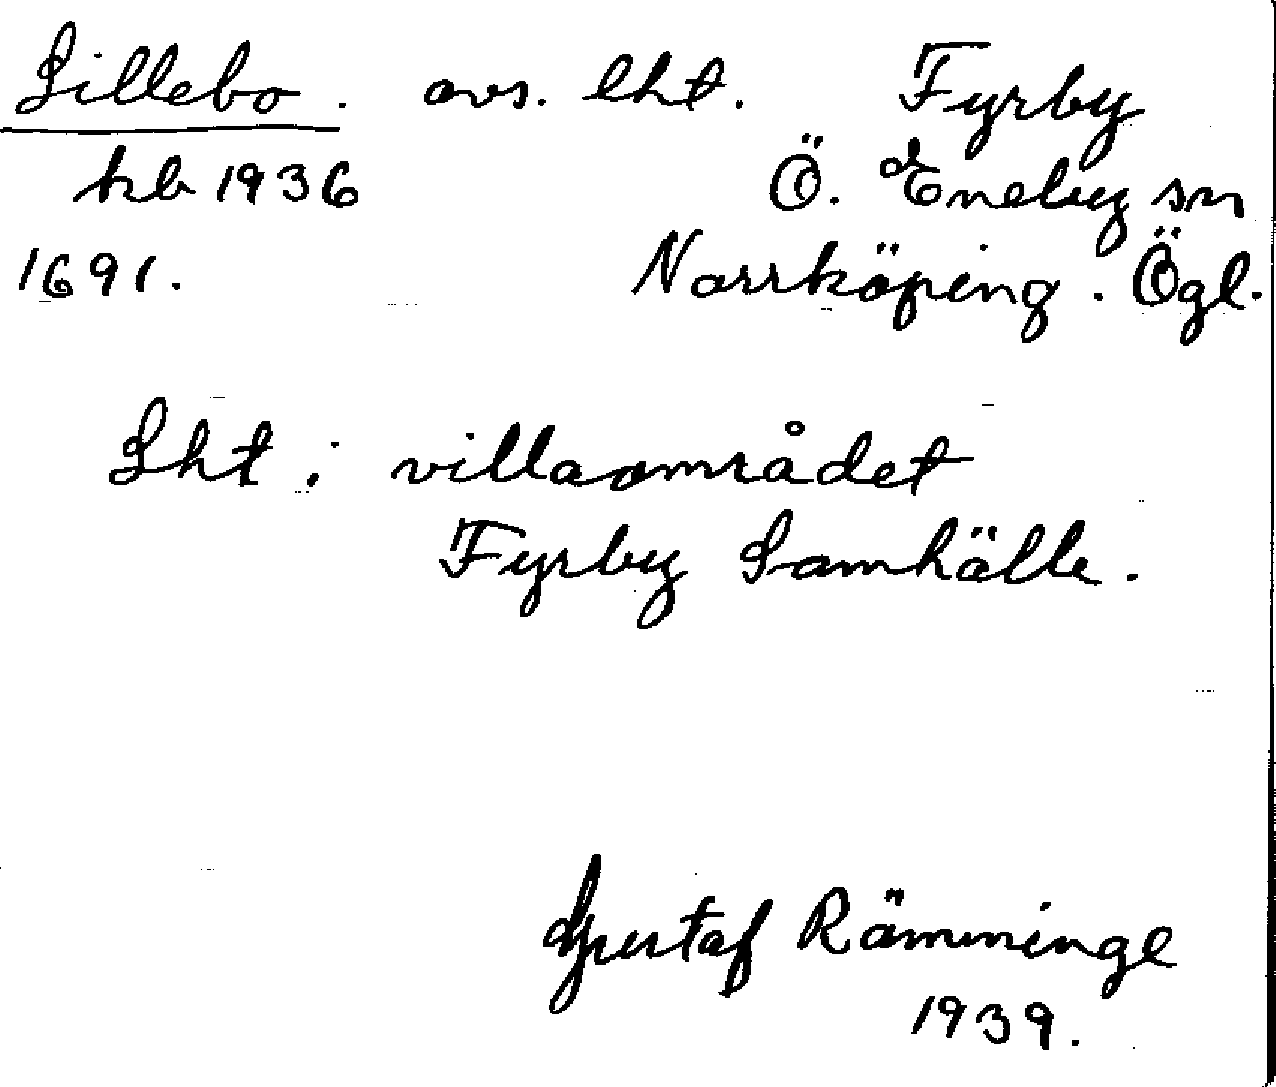 Lillebo. avs. lht. Fyrby
kb 1936 Ö. Eneby sn
1691. Norrköping. Ögl.
Lht. i villaområdet
Fyrby Samhälle.
Gustaf Rämminge
1939.